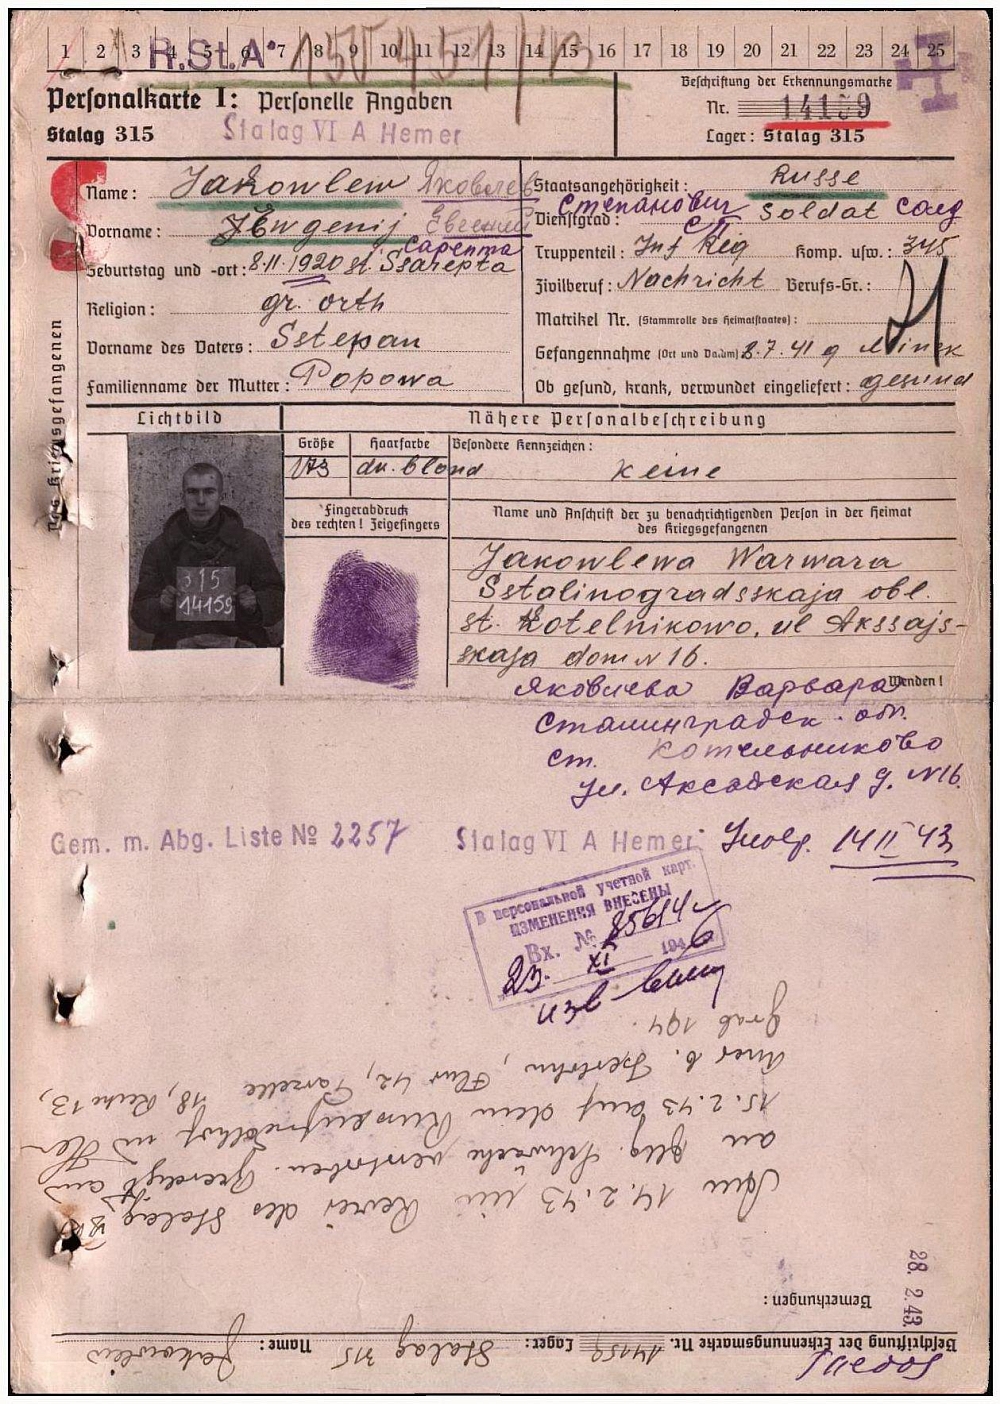 1 2 3 4 5 6 7 8 9 10 11 12 13 14 15 16 17 18 19 20 21 22 23 24 25
R.St.A.
Personalkarte I: Personelle Angaben
Stalag 315
Stalag VI A Hemer
Beschriftung der Erkennungsmarke
Nr. 14159
Lager: Stalag 315
Des Kriegsgefangenen
Name: Jakowlew Яковлев
Vorname: Jewgenij Евгений Степанович
Geburtstag und -ort: 8.11.1920 st. Ssarepta Сарепта
Religion: gr. orth
Vorname des Vaters: Sstepan
Familienname der Mutter: Popowa
Staatsangehörigkeit: Russe
Dienstgrad: Soldat солд
Truppenteil: Inf Reg СП Komp. usw.: 345
Zivilberuf: Nachricht Berufs-Gr.:
Matrikel Nr. (Stammrolle des Heimatstaates):
Gefangennahme (Ort und Datum) 8.7.41 g Minsk
Ob gesund, krank, verwundet eingeliefert: gesund
Lichtbild
315
14159
Nähere Personalbeschreibung
Größe Haarfarbe Besondere Kennzeichen:
173 du. blond keine
Fingerabdruck
des rechten! Zeigefingers
Name und Anschrift der zu benachrichtigenden Person in der Heimat
des Kriegsgefangenen
Jakowlewa Warwara
Sstalinogradsskaja obl.
st. Kotelnikowo, ul Akssajs-
skaja dom N 16.
Wenden!
Яковлева Варвара
Сталинградск. обл.
ст. Котельниково
ул. Аксайская д. N16.
Gem. m. Abg. Liste № 2257 Stalag VI A Hemer 14 II 43
В персональной учетной карт.
ИЗМЕНЕНИЯ ВНЕСЕНЫ
Вх. № 85614
23. XI 1946
Beschriftung der Erkennungsmarke Nr. 14159 Lager: Stalag 315 Name: Jakowlew
Bemerkungen:
28. 2. 43.
Am 14.2.43 im Revier des Stalag
an allg. Schwäche verstorben. Beerdigt am
15.2.43 auf dem Russenfriedhof in He-
mer b. Iserlohn, Flur 42, Parzelle 18, Reihe 13,
Grab 194.